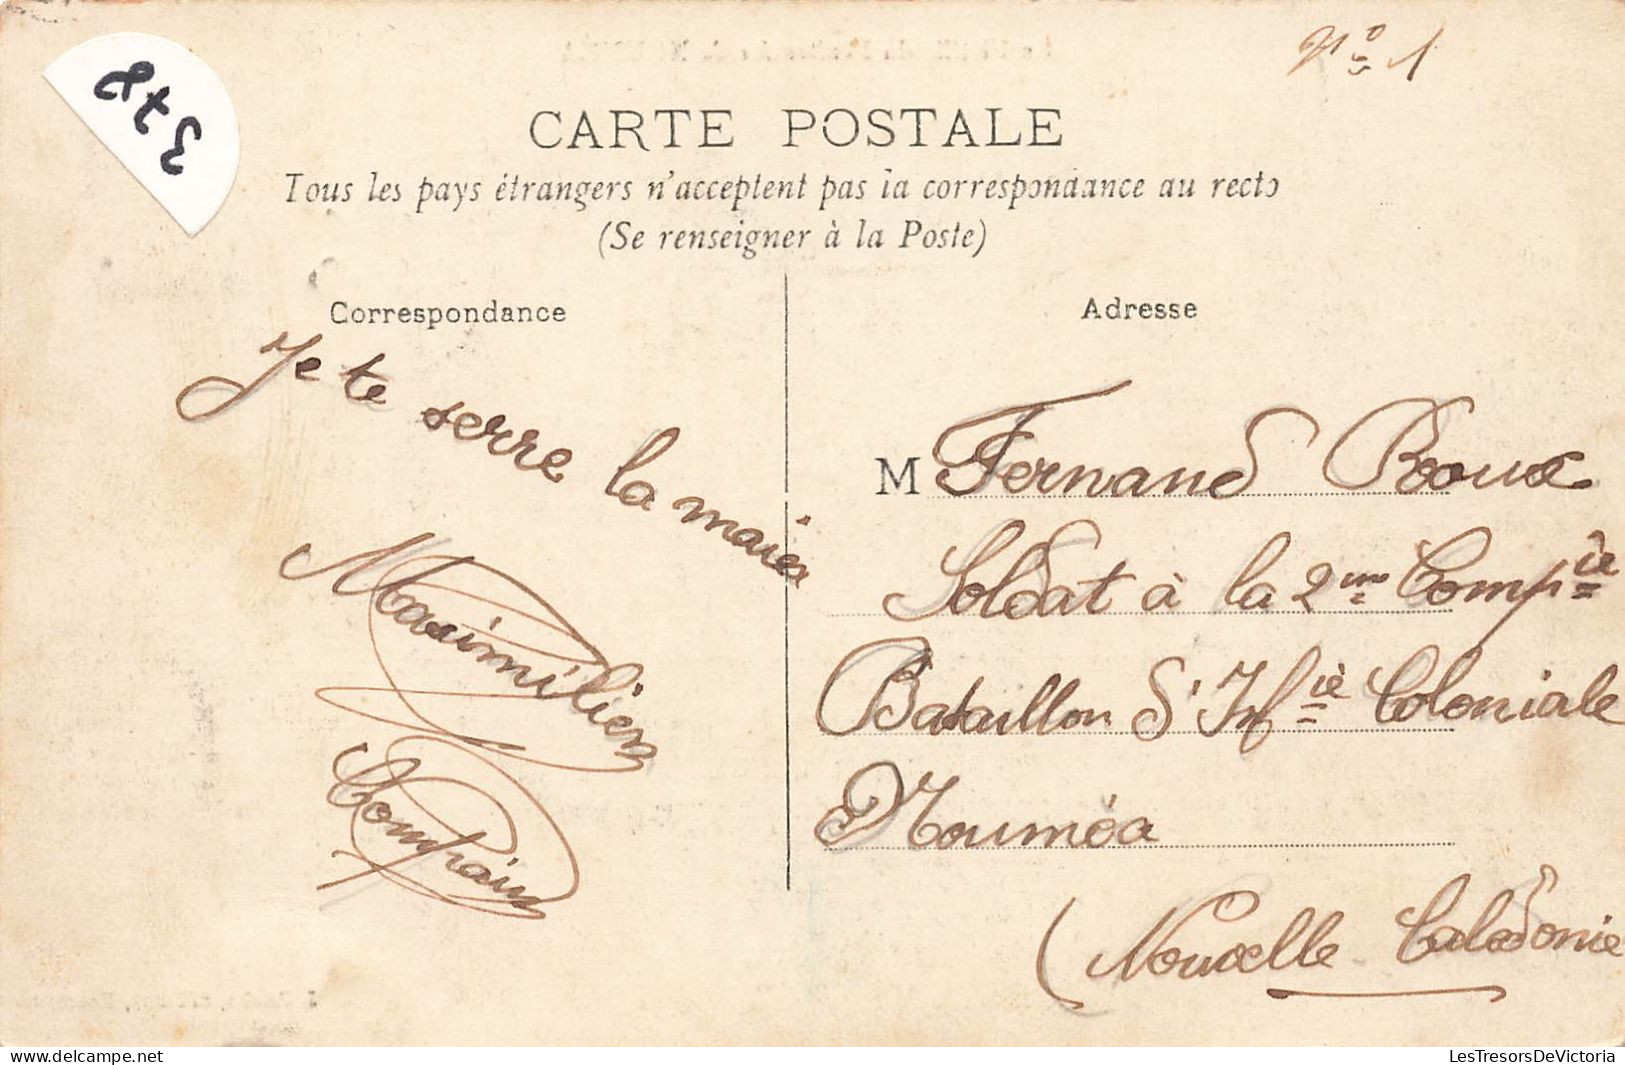 Nº 1
CARTE POSTALE
Tous les pays étrangers n'acceptent pas la correspondance au recto
(Se renseigner à la Poste)
Correspondance
Je te serre la main
Maximilien
Compain
Adresse
M Fernand Roux
Soldat à la 2me Compie
Bataillon d'Infie Coloniale
Nouméa
(Nouvelle Calédonie
delcampe.net
LesTresorsDeVictoria